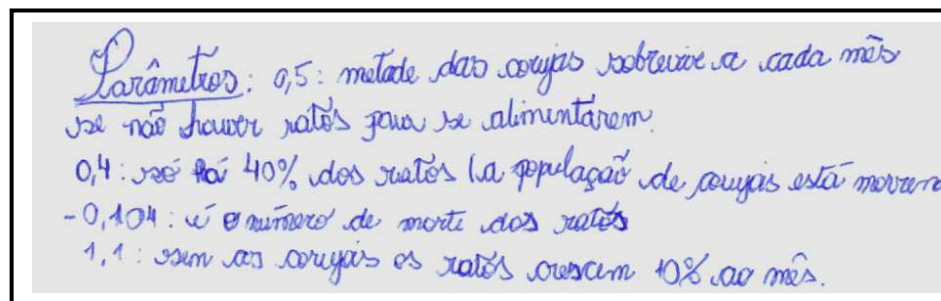 Parâmetros: 0,5: metade das corujas sobrevive a cada mês
se não houver ratos para se alimentarem.
0,4: só há 40% dos ratos (a população de corujas está morren
-0,104: é o número de morte dos ratos
1,1: sem as corujas os ratos crescem 10% ao mês.